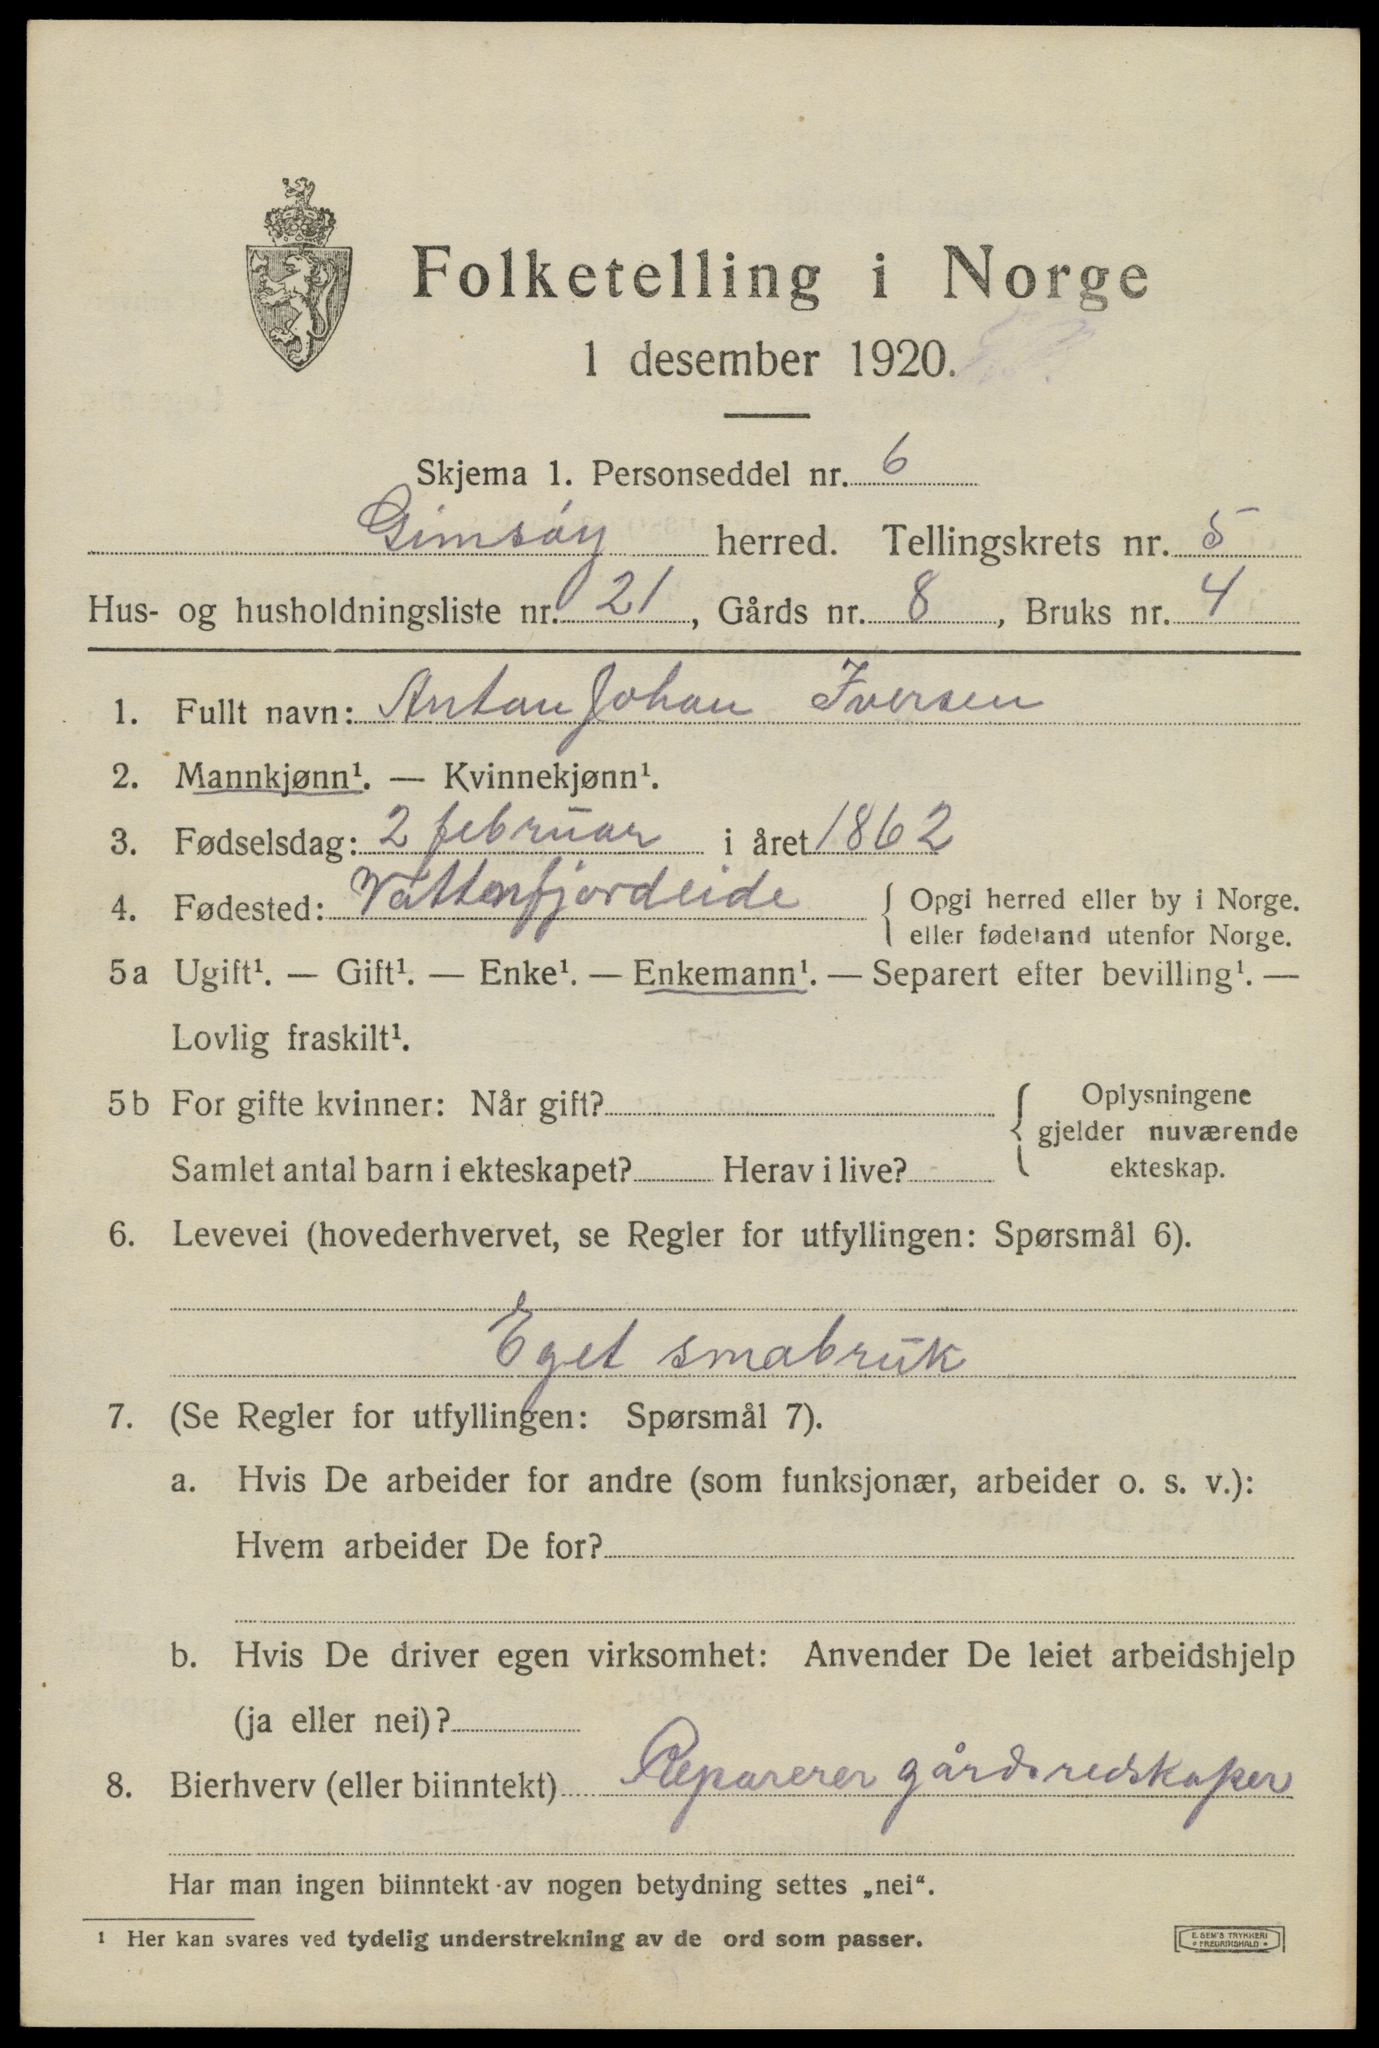 Folketelling i Norge
1 desember 1920.
Skjema 1. Personseddel nr. 6
Gimsøy herred. Tellingskrets nr. 5
Hus- og husholdningsliste nr. 21, Gårds nr. 8, Bruks nr. 4
1. Fullt navn: Anton Johan Iversen
2. Mannkjønn¹. — Kvinnekjønn¹.
3. Fødselsdag: 2 februar i året 1862
4. Fødested: Vattenfjordeide { Opgi herred eller by i Norge.
eller fødeland utenfor Norge.
5a Ugift¹. — Gift¹. — Enke¹. — Enkemann¹. — Separert efter bevilling¹. —
Lovlig fraskilt¹.
5b For gifte kvinner: Når gift? { Oplysningene
gjelder nuværende
Samlet antal barn i ekteskapet? Herav i live? ekteskap.
6. Levevei (hovederhvervet, se Regler for utfyllingen: Spørsmål 6).
Eget smabruk
7. (Se Regler for utfyllingen: Spørsmål 7).
a. Hvis De arbeider for andre (som funksjonær, arbeider o. s. v.):
Hvem arbeider De for?
b. Hvis De driver egen virksomhet: Anvender De leiet arbeidshjelp
(ja eller nei)?
8. Bierhverv (eller biinntekt) Reparerer gårdsredskaper
Har man ingen biinntekt av nogen betydning settes „nei“.
¹ Her kan svares ved tydelig understrekning av de ord som passer.
E. SEM'S TRYKKERI
FREDRIKSHALD